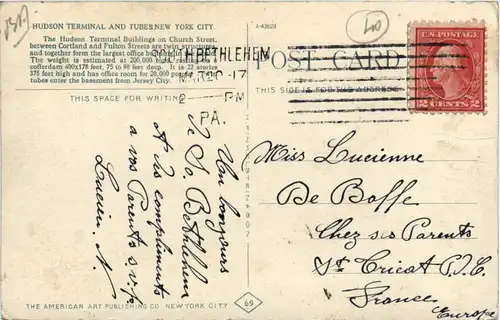 HUDSON TERMINAL AND TUBES NEW YORK CITY.
The Hudson Terminal Buildings on Church Street,
between Cortland and Fulton Streets are twin structures,
and together form the largest office building in
The weight is estimated at 200,000
cofferdam 400x178 feet, 75 to 98 feet deep. It is 22 stories
275 feet high and has office room for 20,000 people
tubes enter the basement from Jersey City.
THIS SPACE FOR WRITIN
A-43629
SOUTH BETHLEHEM
20-17
2 — PM
PA.
POST CARD
THIS SIDE IS FOR THE ADDRESS
U.S. POSTAGE
2 CENTS 2
40
Un bonjours
de So Bethlehem
et vis compliments
a vos Parents s.v.p.
Lucien N.
Miss Lucienne
De Boffe
Chez ses Parents
St Cricat P.J.C.
France
Europe
THE AMERICAN ART PUBLISHING CO NEW YORK CITY
69